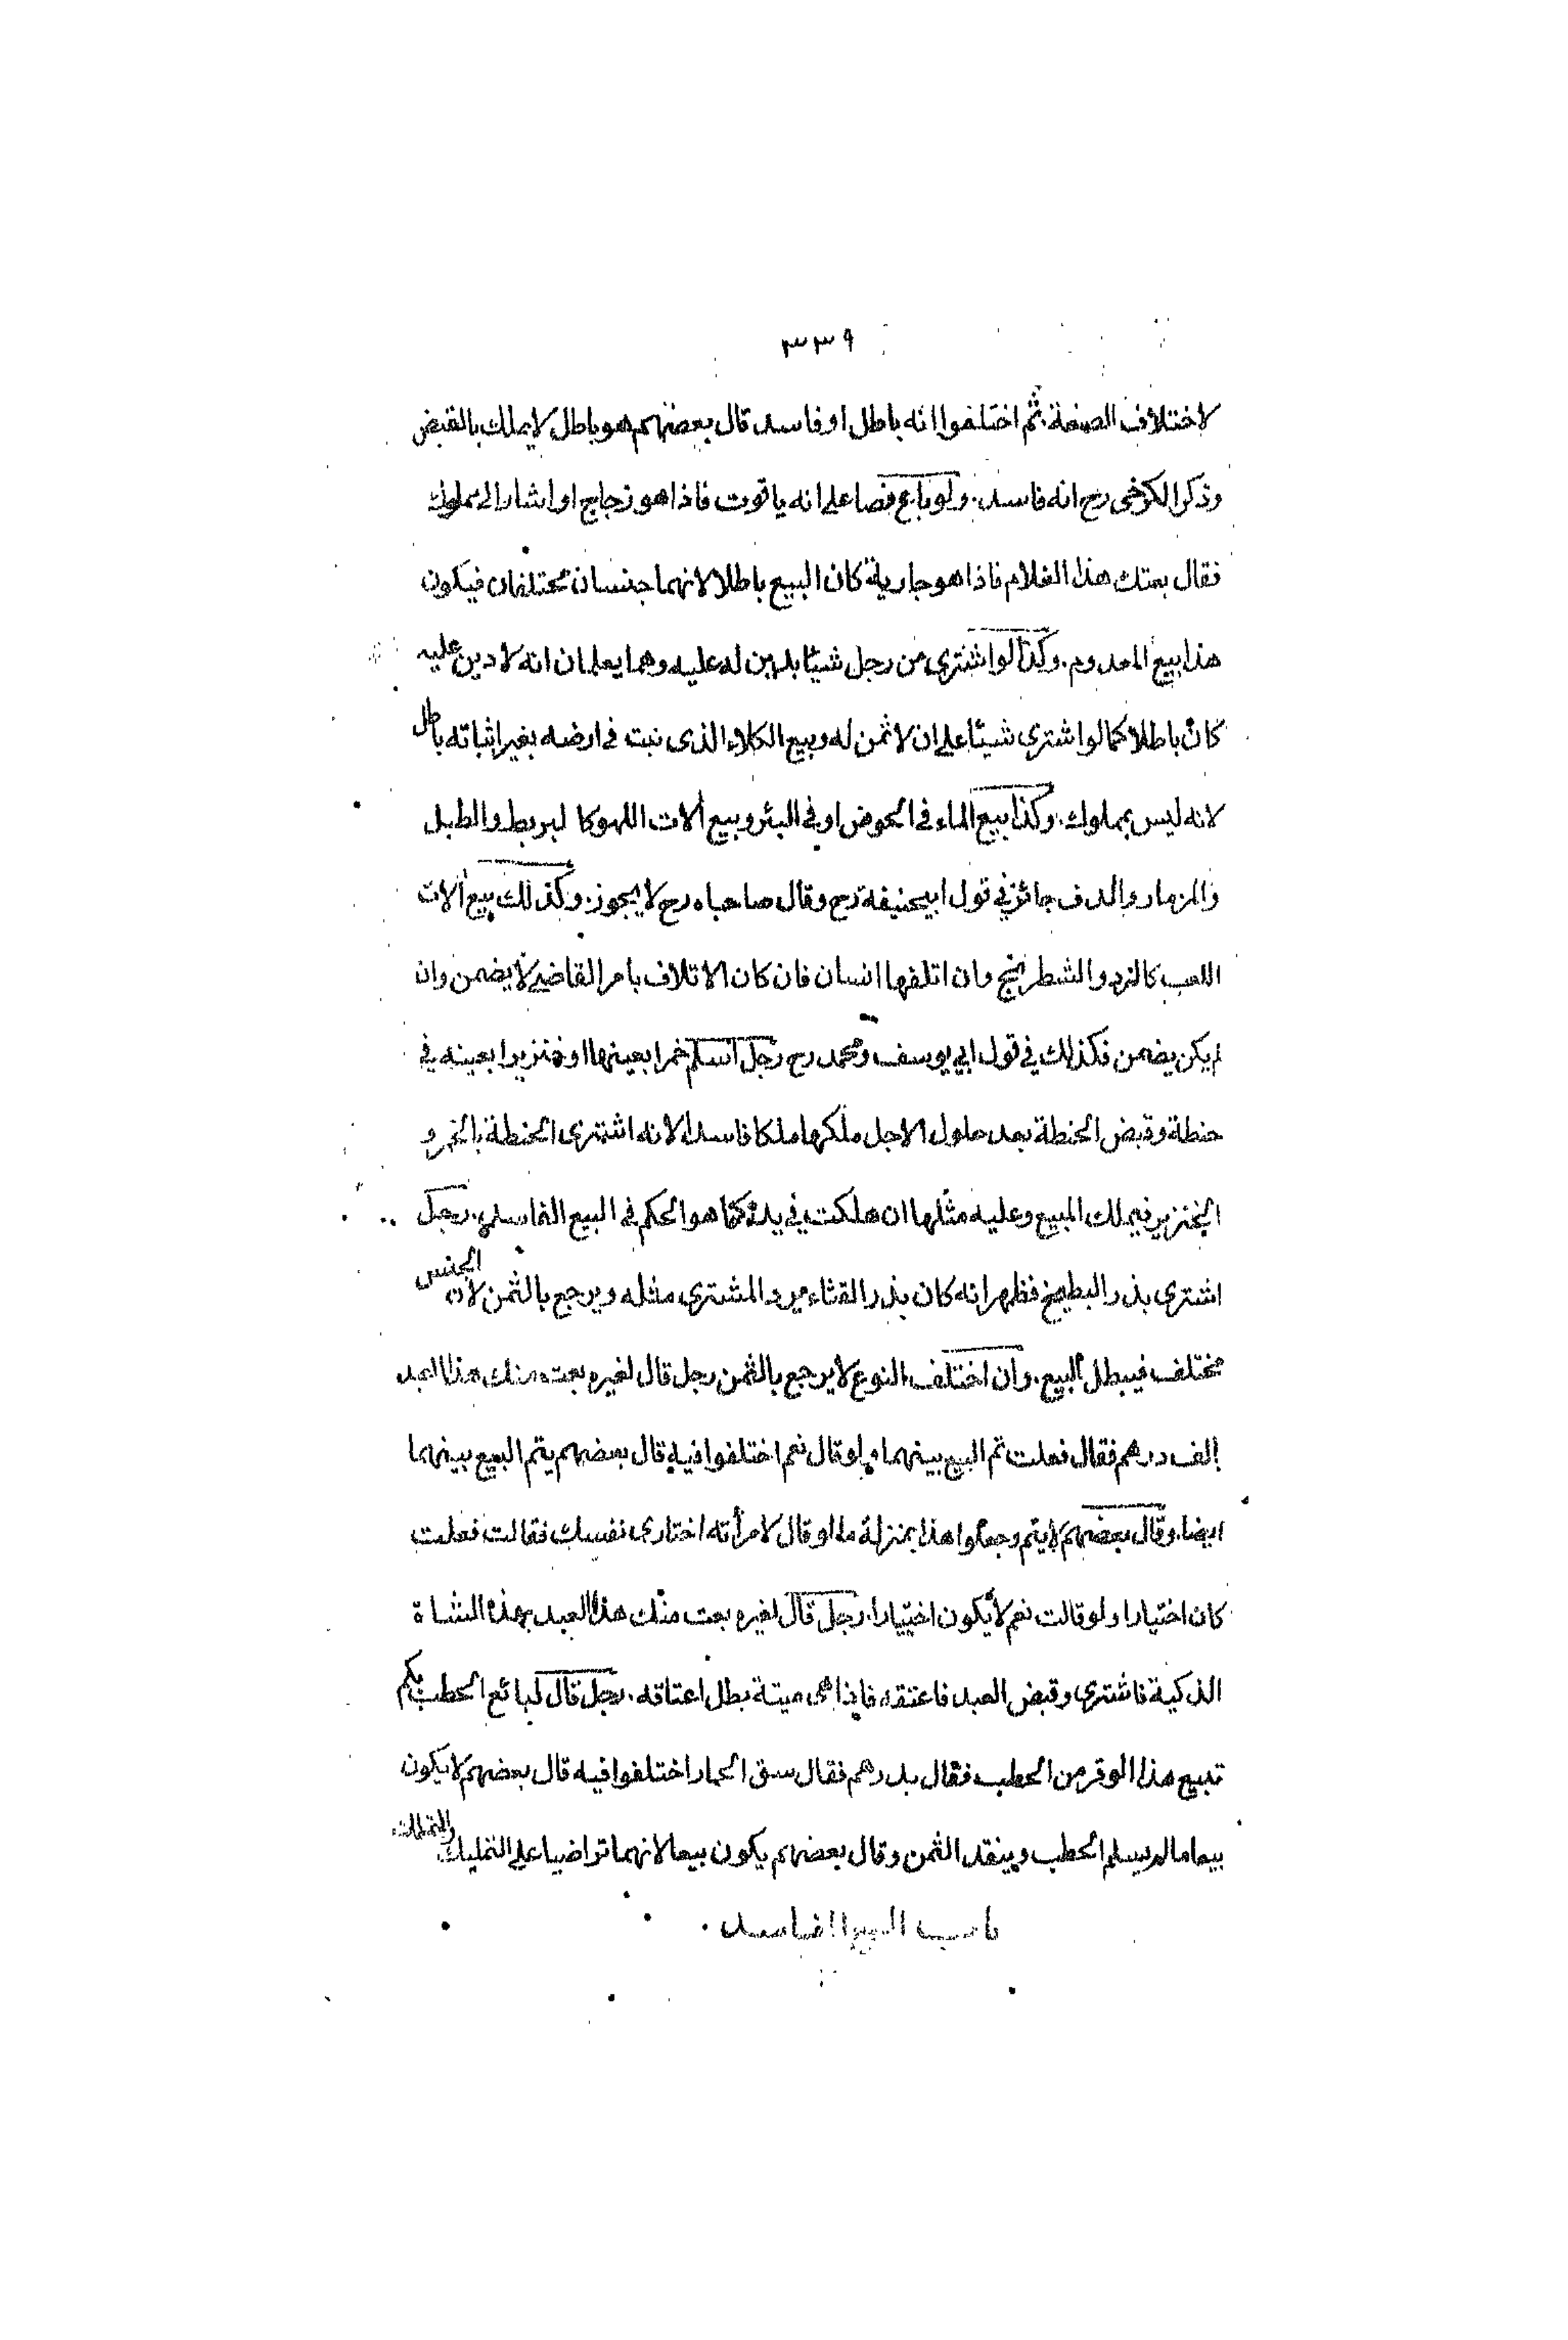 ٣٣٩
لاختلاف الصفة. ثم اختلفوا انه باطل او فاسد قال بعضهم هو باطل لا يملك بالقبض
وذكر الكرخى رح انه فاسد. ولو باع فصا على انه ياقوت فاذا هو زجاج او اشار الى مملوك
فقال بعتك هذا الغلام فاذا هو جارية كان البيع باطلا لانهما جنسان مختلفان فيكون
هذا بيع المعدوم. وكذا لو اشترى من رجل شيئا بدين له عليه وهما يعلمان انه لا دين عليه
كان باطلا كما لو اشترى شيئا على ان لا ثمن له وبيع الكلاء الذى نبت فى ارضه بغير انباته باطل
لانه ليس بمملوك. وكذا بيع الماء فى الحوض او فى البئر وبيع آلات اللهو كالبربط والطبل
والمزمار والدف جائز فى قول ابيحنيفة رح وقال صاحباه رح لا يجوز. وكذلك بيع آلات
اللعب كالنرد والشطرنج وان اتلفها انسان فان كان الاتلاف بامر القاضى لا يضمن وان
لم يكن يضمن فكذلك فى قول ابى يوسف ومحمد رح رجل اسلم خمرا بعينها او خنزيرا بعينه فى
حنطة وقبض الحنطة بعد حلول الاجل ملكها ملكا فاسدا لانه اشترى الحنطة بالخمر و
الخنزير فيملك المبيع وعليه مثلها ان هلكت فى يده كما هو الحكم فى البيع الفاسد. رجل
اشترى بذر البطيخ فظهر انه كان بذر القثاء يرد المشترى مثله ويرجع بالثمن لان الجنس
مختلف فيبطل البيع. وان اختلف النوع لا يرجع بالثمن رجل قال لغيره بعت منك هذا العبد
بالف درهم فقال فعلت تم البيع بينهما ولو قال نعم اختلفوا فيه قال بعضهم يتم البيع بينهما
ايضا. وقال بعضهم لا يتم وجعلوا هذا بمنزلة ما لو قال لامرأته اختارى نفسك فقالت فعلت
كان اختيارا ولو قالت نعم لا يكون اختيارا. رجل قال لغيره بعت منك هذا العبد بهذه الشاة
الذكية فاشترى وقبض العبد فاعتقه فاذا هى ميتة بطل اعتاقه. رجل قال لبائع الحطب بكم
تبيع هذا الوقر من الحطب فقال بدرهم فقال سق الحمار اختلفوا فيه قال بعضهم لا يكون
بيعا ما لم يسلم الحطب وينقد الثمن وقال بعضهم يكون بيعا لانهما تراضيا على التمليك والتملك
باب البيع الفاسد.